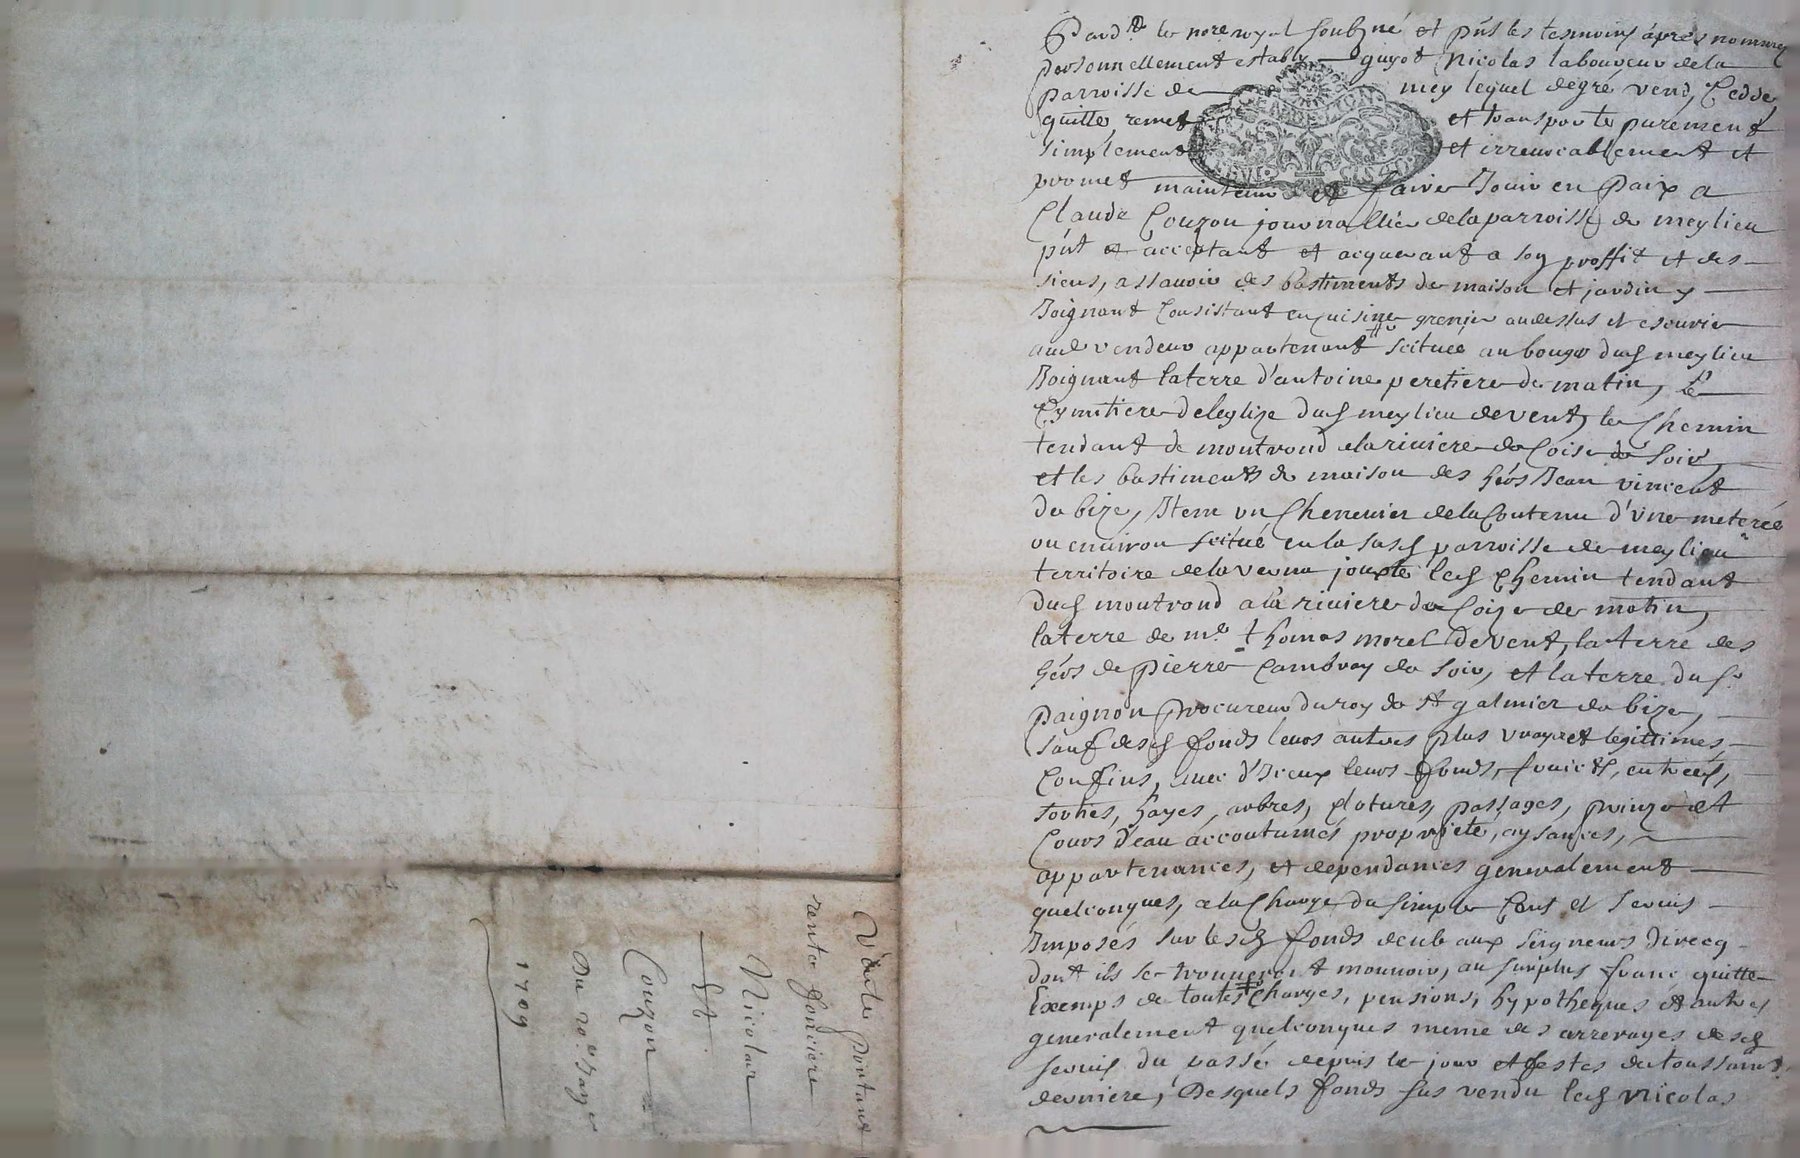 Pard.t le no.re royal soubz.né et pñs les tesmoins après nommez
personnellement estably guyot Nicolas laboureur de la
parroisse de mey lequel de gré vend, cedde,
quitte, remet et transporte purement
simplement et irrevocablement et
promet maintenir et faire Jouir en paix a
Claude Couzon journallier de la parroisse de meylieu
pñt et acceptant et acquerant a son proffit et des
siens, assavoir des bastiments de maison et jardin y
Joignant Consistant en cuisine grenier au dessus et escurie
aud vendeur appartenant scituée au bourg dud meylieu
Joignant la terre d'antoine peretiere de matin, le
Cymitiere de leglize dud meylieu de vent, le Chemin
tendant de montrond a la riviere de Coise de soir,
et les bastiments de maison des hérs Jean vincent
de bize, Item un Chenevier de la Contenu d'une meterée
ou environ scitué en la susd parroisse de meylieu
territoire de la verna jouxte led Chemin tendant
dud montrond a la riviere de Coize de matin,
la terre de me thomas morel de vent, la terre des
hérs de pierre Cambray de soir, et la terre du sr
paignon procureur du roy de st galmier de bize,
sauf desd fonds leurs autres plus vrays et legittimes
Confins, avec d'Iceux leurs fonds, , entrées,
sorties, hayes, arbres, clotures, passages, prinze et
Cours d'eau accoutumés propriété, aysances,
appartenances, et dependances generalement
quelconques, a la Charge du simple Cens et servis
Imposés sur lesd fonds deub aux seigneurs directz
dont ils se trouveront mouvoir, au surplus franc quitte
Exemps de toutes Charges, pensions, hypotheques et autres
generalement quelconques meme des arrerages desd
servis du passé depuis le jour et festes de toussaint
derniere, Desquels fonds sus vendu led Nicolas
Vente portant
rente fonciere
Nicolas
Et
Couzon
Du 20.e
1709